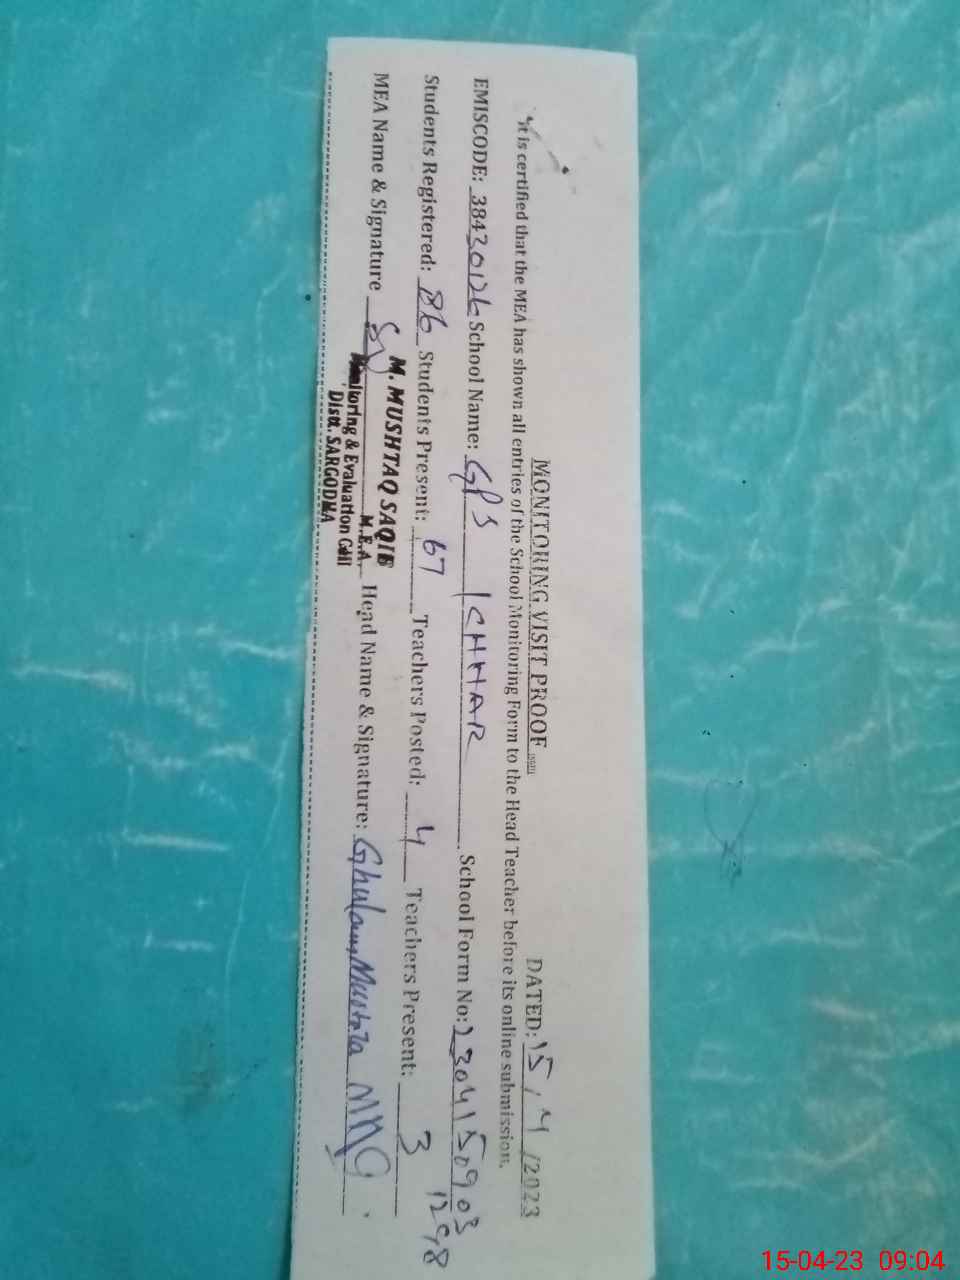 MONITORING VISIT PROOF DATED: 15/4/2023
It is certified that the MEA has shown all entries of the School Monitoring Form to the Head Teacher before its online submission.
EMISCODE: 38430126 School Name: GPS ICHHAR School Form No: 2304150903
1298
Students Registered: 86 Students Present: 67 Teachers Posted: 4 Teachers Present: 3
MEA Name & Signature Head Name & Signature: Ghulam Mustafa
M. MUSHTAQ SAQIB
M.E.A.
Monitoring & Evaluation Cell
Distt. SARGODHA
15-04-23 09:04